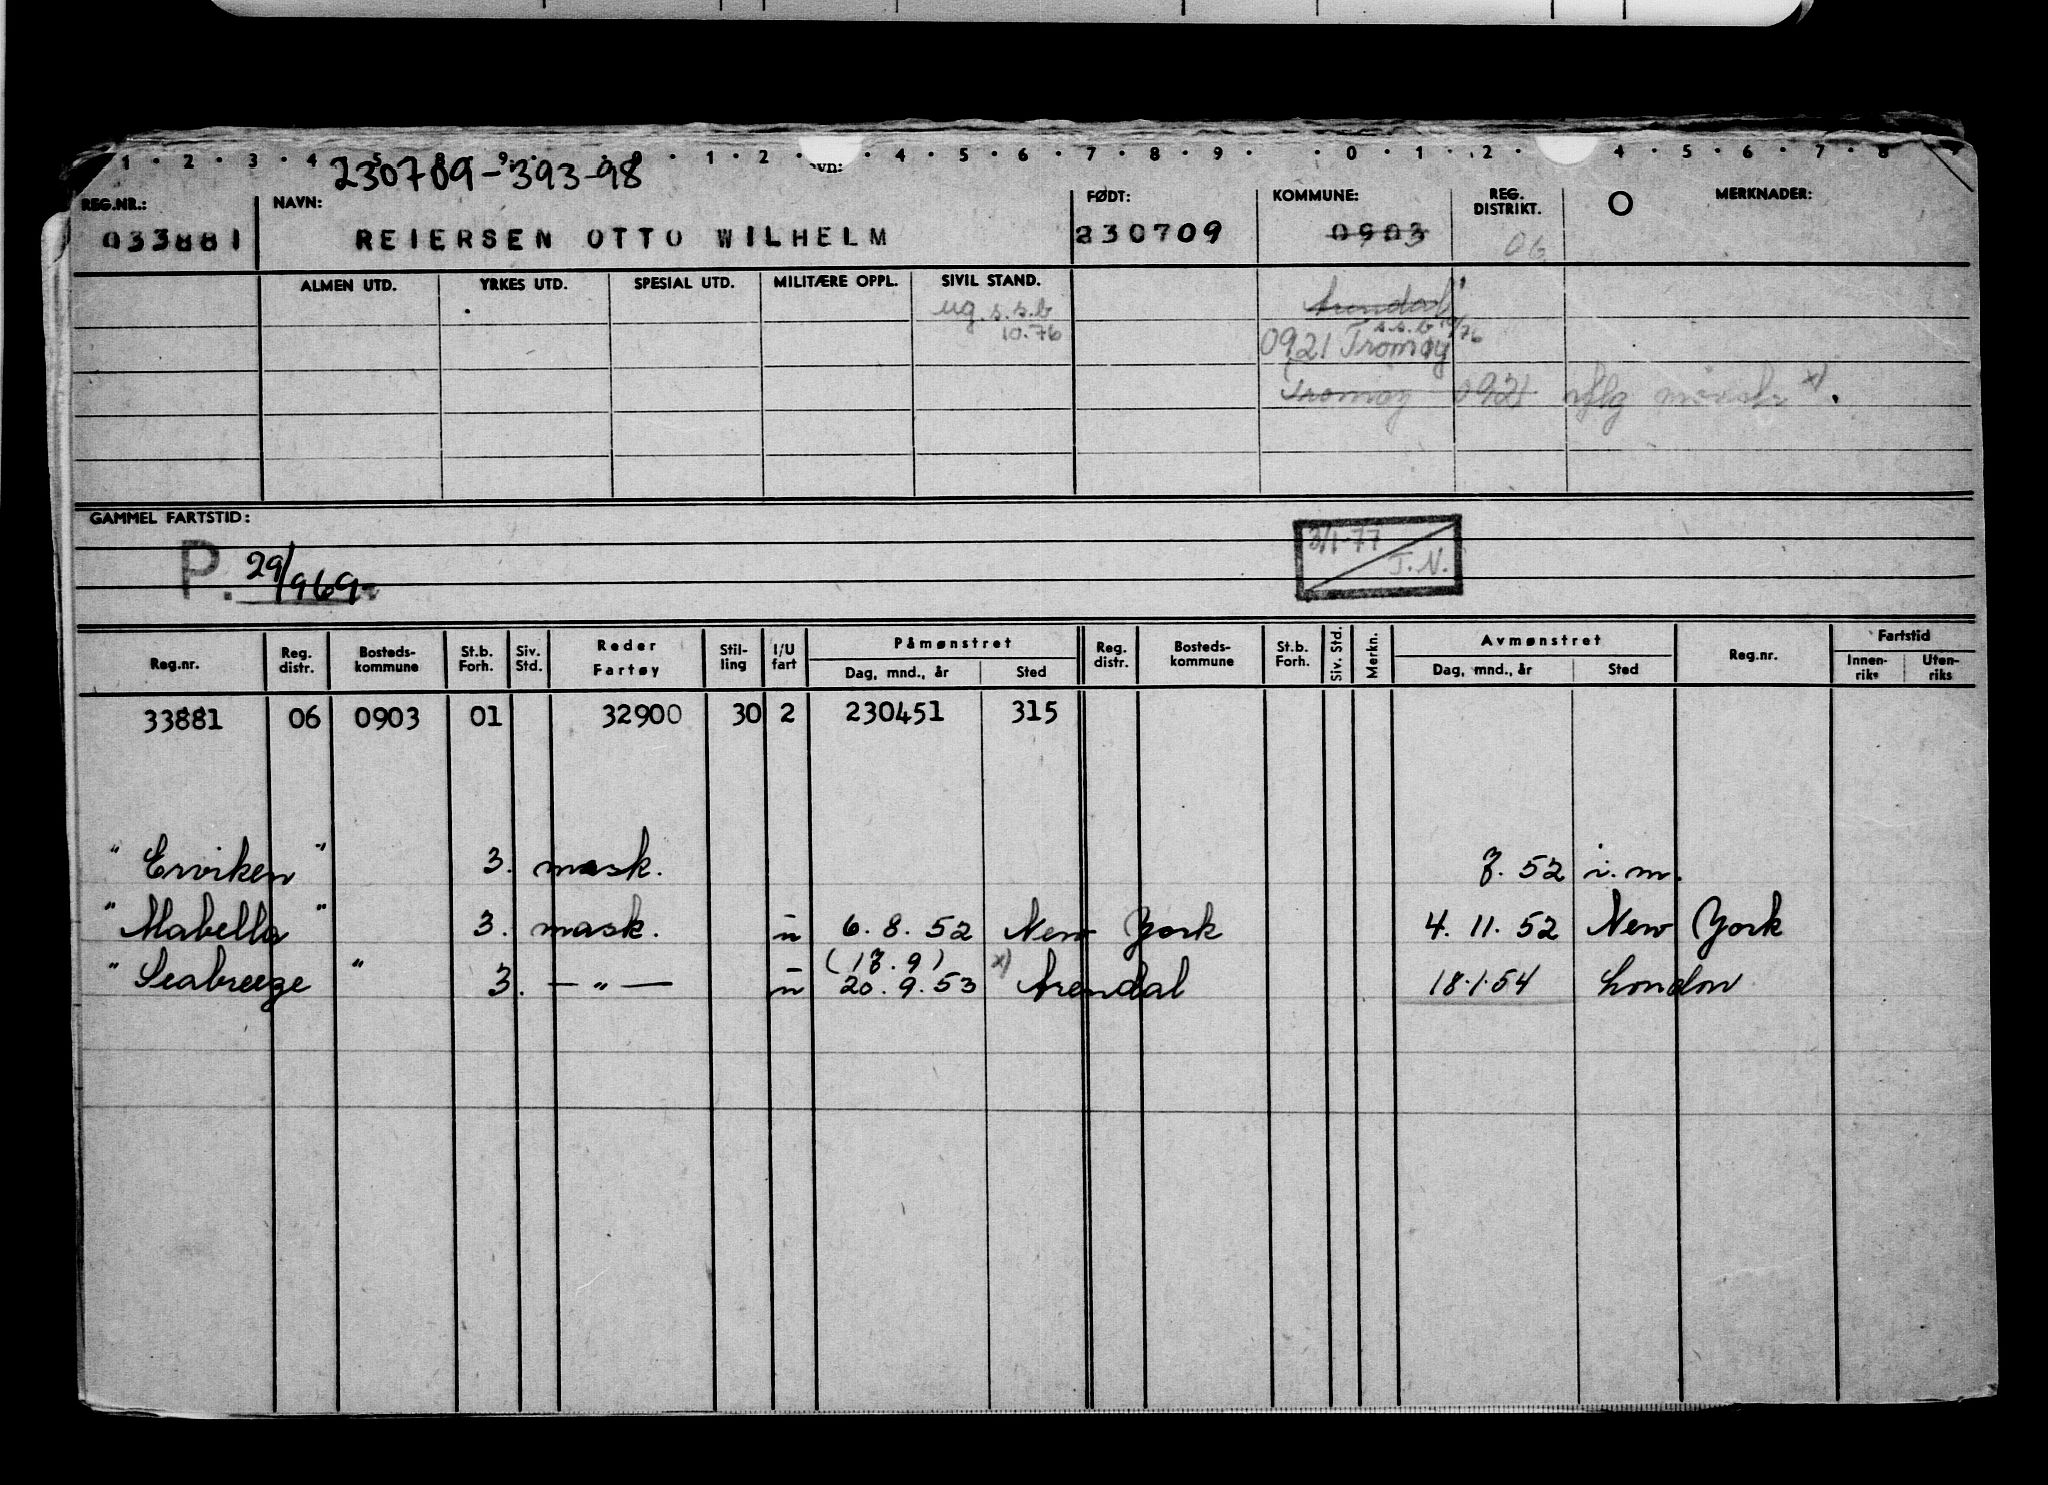 1 · 2 · 3 · 4 · 1 · 2 · 4 · 5 · 6 · 7 · 8 · 9 · 0 · 1 · 2 · 4 · 5 · 6 · 7 · 8
230709-393-98
REG.NR.: NAVN: FØDT: KOMMUNE: REG. DISTRIKT. O MERKNADER:
033881 REIERSEN OTTO WILHELM 230709 0903 06
ALMEN UTD. YRKES UTD. SPESIAL UTD. MILITÆRE OPPL. SIVIL STAND.
ug. s.s.b Arendal
10.76 s.s.b 10/76
0921 Tromøy
Tromøy 0921 x)
GAMMEL FARTSTID:
3/1-77
T.N.
P. 29/969
Reg.nr. Reg. distr. Bosteds-kommune St.b. Forh. Siv. Std. Reder Fartøy Stil-ling I/U fart Påmønstret Dag, mnd., år Sted Reg. distr. Bosteds-kommune St.b. Forh. Siv. Std. Merkn. Avmønstret Dag, mnd., år Sted Reg.nr. Fartstid Innen-riks Uten-riks
33881 06 0903 01 32900 30 2 230451 315
"Erviken" 3. mask. 7. 52 i.m.
"Mabella" 3. mask. u 6. 8. 52 New York 4. 11. 52 New York
(17. 9) x)
"Seabreeze" 3. — " — u 20. 9. 53 Arendal 18.1.54 London